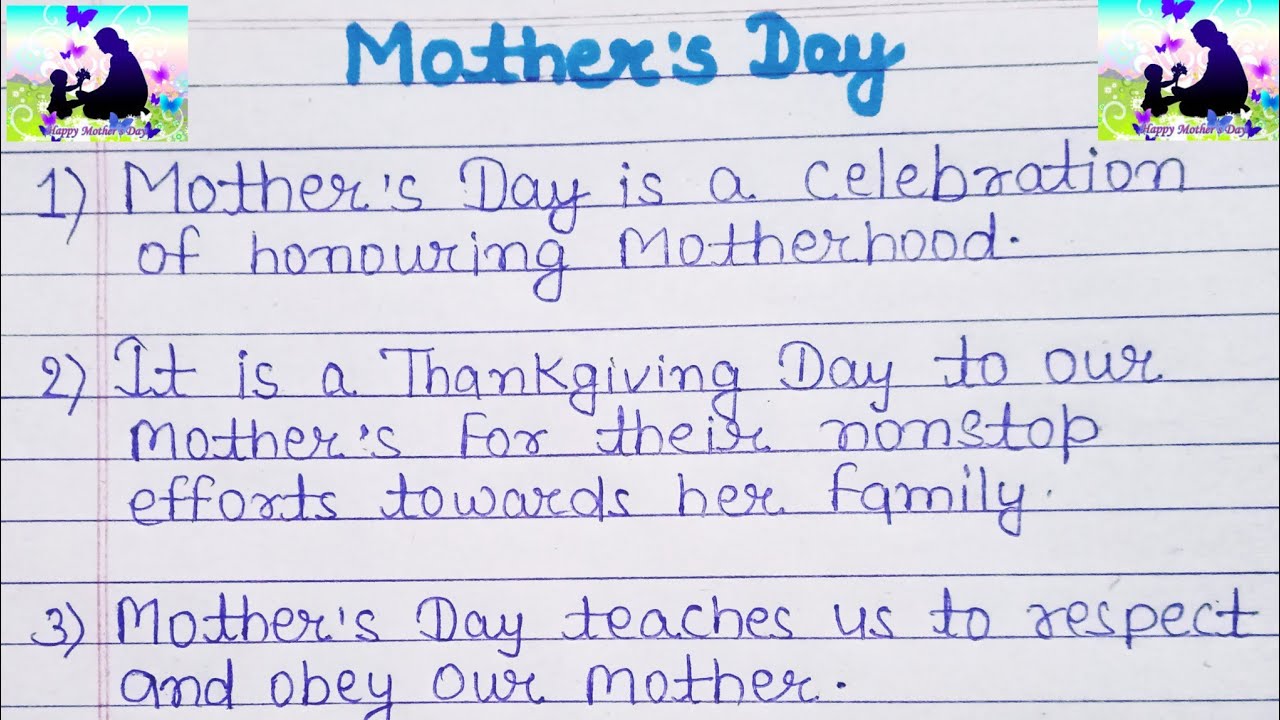 Mother's Day
Happy Mother's Day
Happy Mother's Day
1) Mother's Day is a celebration
of honouring Motherhood.
2) It is a Thankgiving Day to our
Mother's for their nonstop
efforts towards her family.
3) Mother's Day teaches us to respect
and obey our mother.